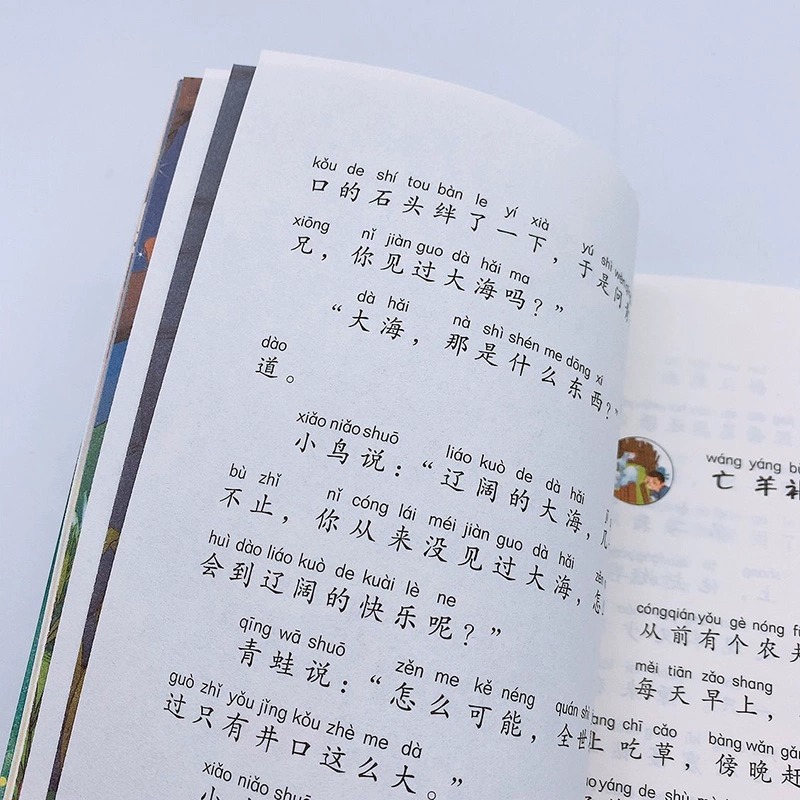 kǒu de shí tou bàn le yí xià yú shì
口的石头绊了一下，于是问
xiōng nǐ jiàn guo dà hǎi ma
兄，你见过大海吗？”
dà hǎi nà shì shén me dōng xi
“大海，那是什么东西？”
dào
道。
xiǎo niǎo shuō liáo kuò de dà hǎi
小鸟说：“辽阔的大海，
bù zhǐ nǐ cóng lái méi jiàn guo dà hǎi
不止，你从来没见过大海，怎
huì dào liáo kuò de kuài lè ne
会到辽阔的快乐呢？”
qīng wā shuō zěn me kě néng quán shì
青蛙说：“怎么可能，全世
guò zhǐ yǒu jǐng kǒu zhè me dà
过只有井口这么大。”
xiǎo niǎo shuō
小鸟
wáng yáng bǔ
亡羊补
cóngqián yǒu gè nóng fū
从前有个农夫
měi tiān zǎo shang
每天早上，
chī cǎo bàng wǎn gǎn
上吃草，傍晚赶
yáng de shù